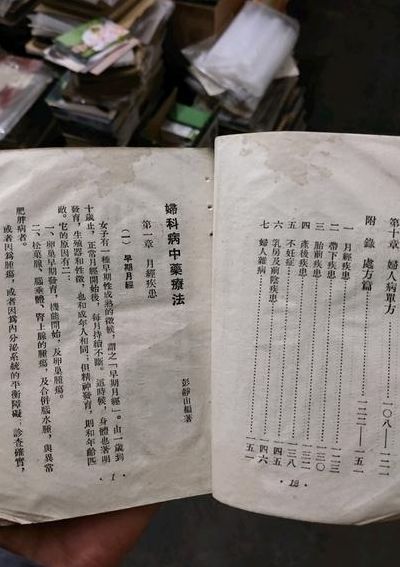 第十章 婦人病單方……一〇八—一二一
附錄 處方篇……一二二—一五一
一 月經疾患……一二二
二 帶下疾患……一二三
三 胎前疾患……一三〇
四 產後疾患……一三八
五 不妊症……一四五
六 乳房及前陰疾患……一四六
七 婦人雜病……一五一
·18·
婦科病中藥療法
彭靜山編著
第一章 月經疾患
(一) 早期月經
女子有一種早期性成熟的徵候，謂之「早期月經」。由一歲到
十歲止，正常月經開始後，每月持續不斷。這時候，身體也著明
發育，生殖器和性徵，也和成年人相同；但精神發育，則和年齡匹
敵。它的原因有二：
一、卵巢早期發育，機能開始，及卵巢腫瘍。
二、松菓腺、腦垂體、腎上腺的腫瘍，及合併腦水腫，與異常
肥胖病者。
或者因爲腫瘍，或者因爲內分泌系統的平衡障礙；診查確實，
·1·